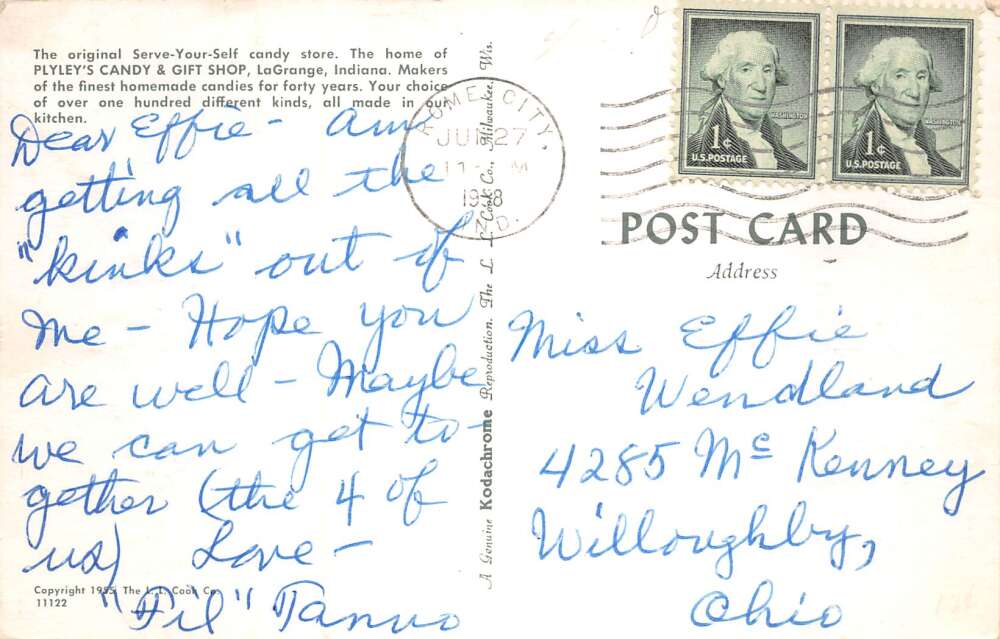 The original Serve-Your-Self candy store. The home of
PLYLEY'S CANDY & GIFT SHOP, LaGrange, Indiana. Makers
of the finest homemade candies for forty years. Your choice
of over one hundred different kinds, all made in our
kitchen.
Dear Effie - Am
getting all the
"kinks" out of
me - Hope you
are well - Maybe
we can get to-
gether (the 4 of
us) Love -
"Fil"
Copyright 1955, The L. L. Cook Co.
11122
A Genuine Kodachrome Reproduction. The L. L. Cook Co., Milwaukee, Wis.
ROME CITY,
JUN 27
M
1958
IND.
WASHINGTON
1¢
U.S. POSTAGE
WASHINGTON
1¢
U.S. POSTAGE
POST CARD
Address
Miss Effie
Wendland
4285 Mc Kenney
Willoughby,
Ohio